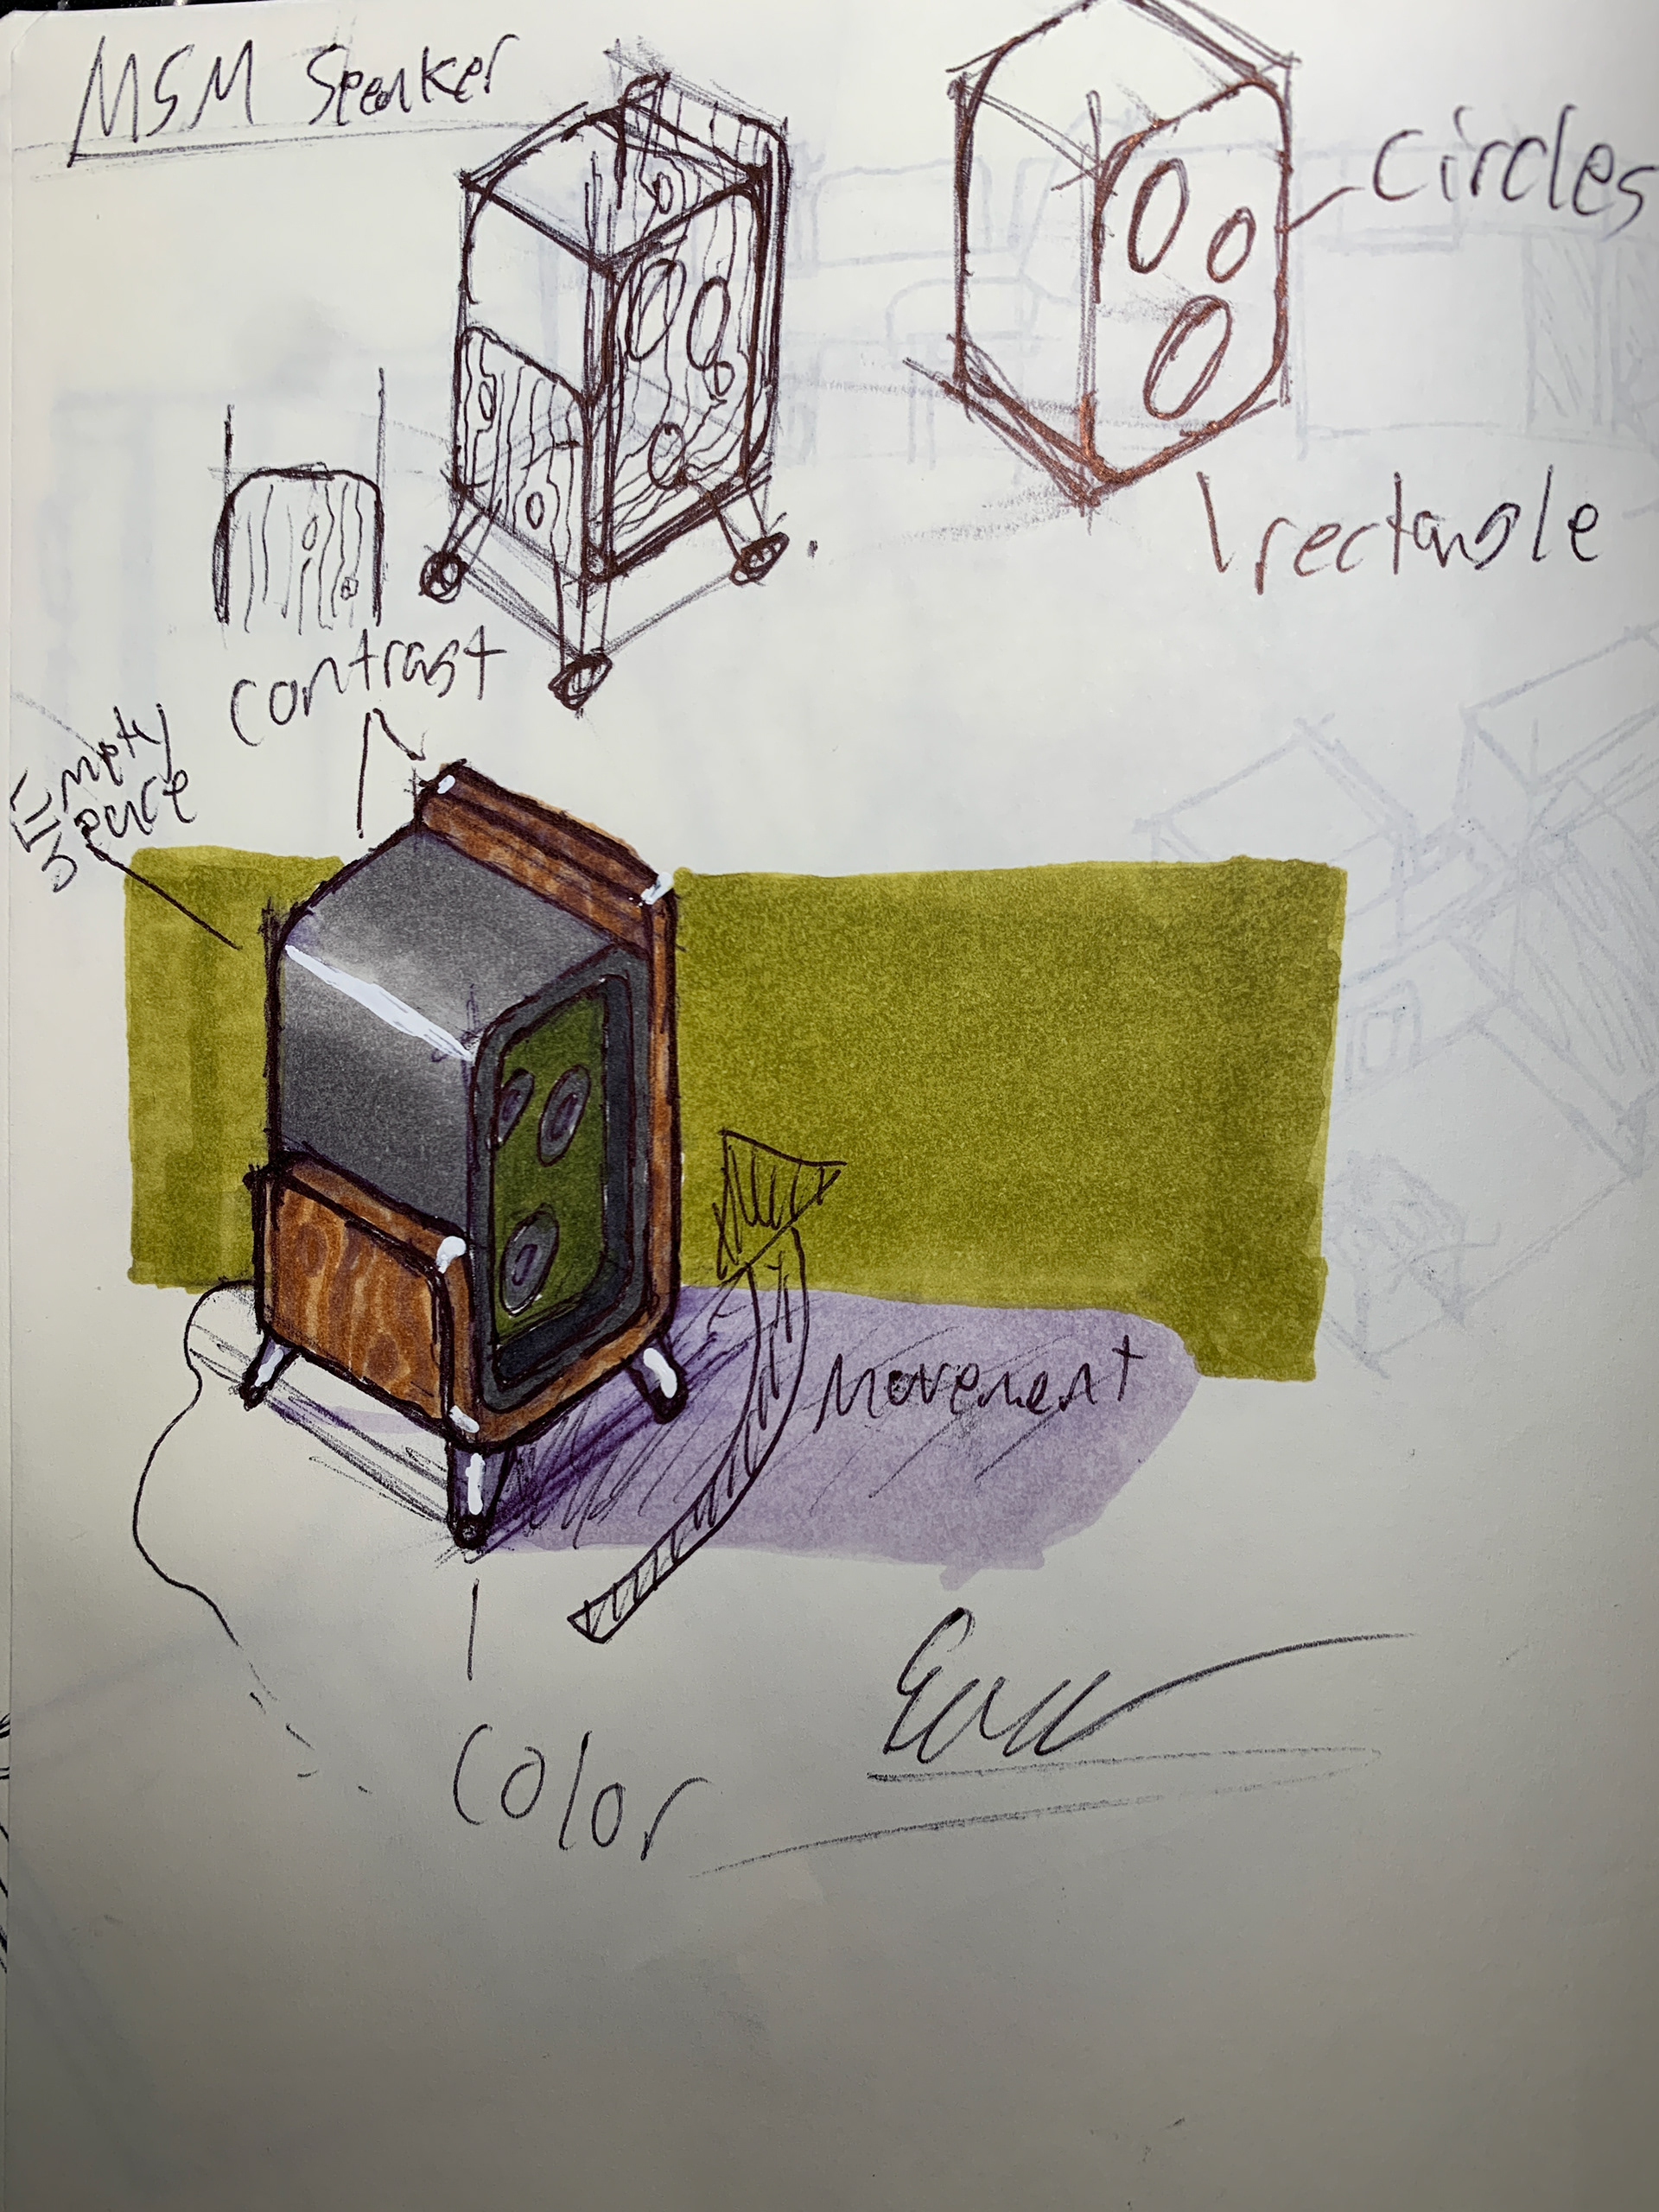 MSM Speaker
circles
rectangle
contrast
Empty
space
Movement
Color